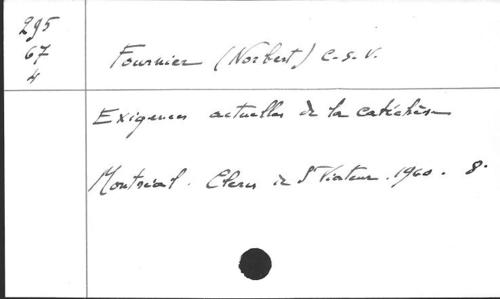 295
67
4
Fournier (Norbert) c.s.v.
Exigences actuelles de la catéchèse
Montréal. Clercs de St Viateur. 1960. 8°